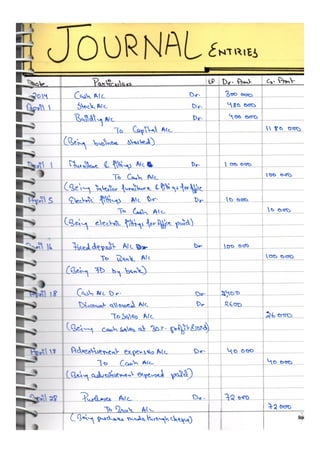 JOURNAL ENTRIES
Date Particulars LF Dr. Amt Cr. Amt
2019 Cash A/c Dr. 300 000
April 1 Stock A/c Dr. 480 000
Building A/c Dr 400 000
To Capital A/c 11 80 000
(Being business started)
April 1 Furniture & fittings A/c Dr 1 00 000
To Cash A/c 100 000
(Being Interior furniture & fittings for office
April 5 Electric fittings A/c Dr Dr 10 000
To Cash A/c 10 000
(Being electric fittings for office paid)
April 16 Fixed deposit A/c Dr 100 000
To Bank A/c 100 000
(Being FD by bank)
April 18 Cash A/c Dr.
Discount allowed A/c Dr 2600
To Sales A/c 26 000
(Being Cash sales at 30% profit &
April 19 Advertisement expenses A/c Dr 40 000
To Cash A/c 40 000
(Being advertisement expensed paid)
April 28 Purchase A/c Dr. 72 000
To Bank A/c 72 000
(Being purchase made through cheque)